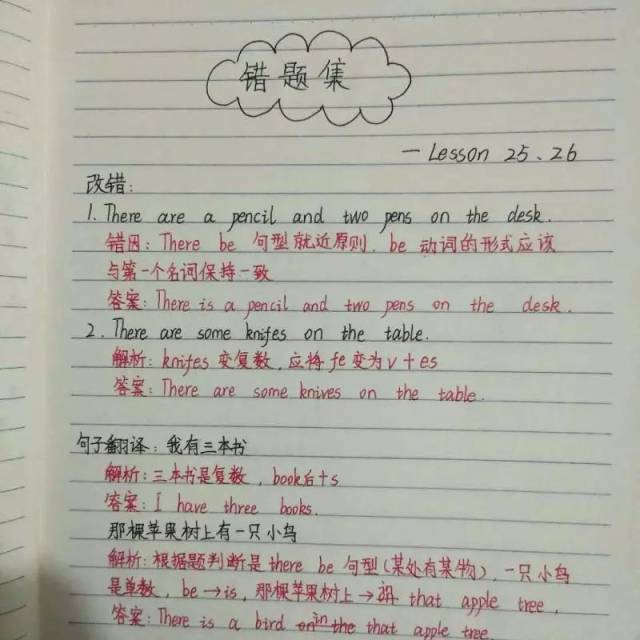 错题集
— Lesson 25、26
改错：
1. There are a pencil and two pens on the desk.
错因：There be 句型就近原则，be 动词的形式应该
与第一个名词保持一致
答案：There is a pencil and two pens on the desk.
2. There are some knifes on the table.
解析：knifes 变复数，应将 fe 变为 v + es
答案：There are some knives on the table.
句子翻译：我有三本书
解析：三本书是复数，book后+s
答案：I have three books.
那棵苹果树上有一只小鸟
解析：根据题判断是 there be 句型(某处有某物)，一只小鸟
是单数，be → is，那棵苹果树上 → that apple tree，
答案：There is a bird in the that apple tree.